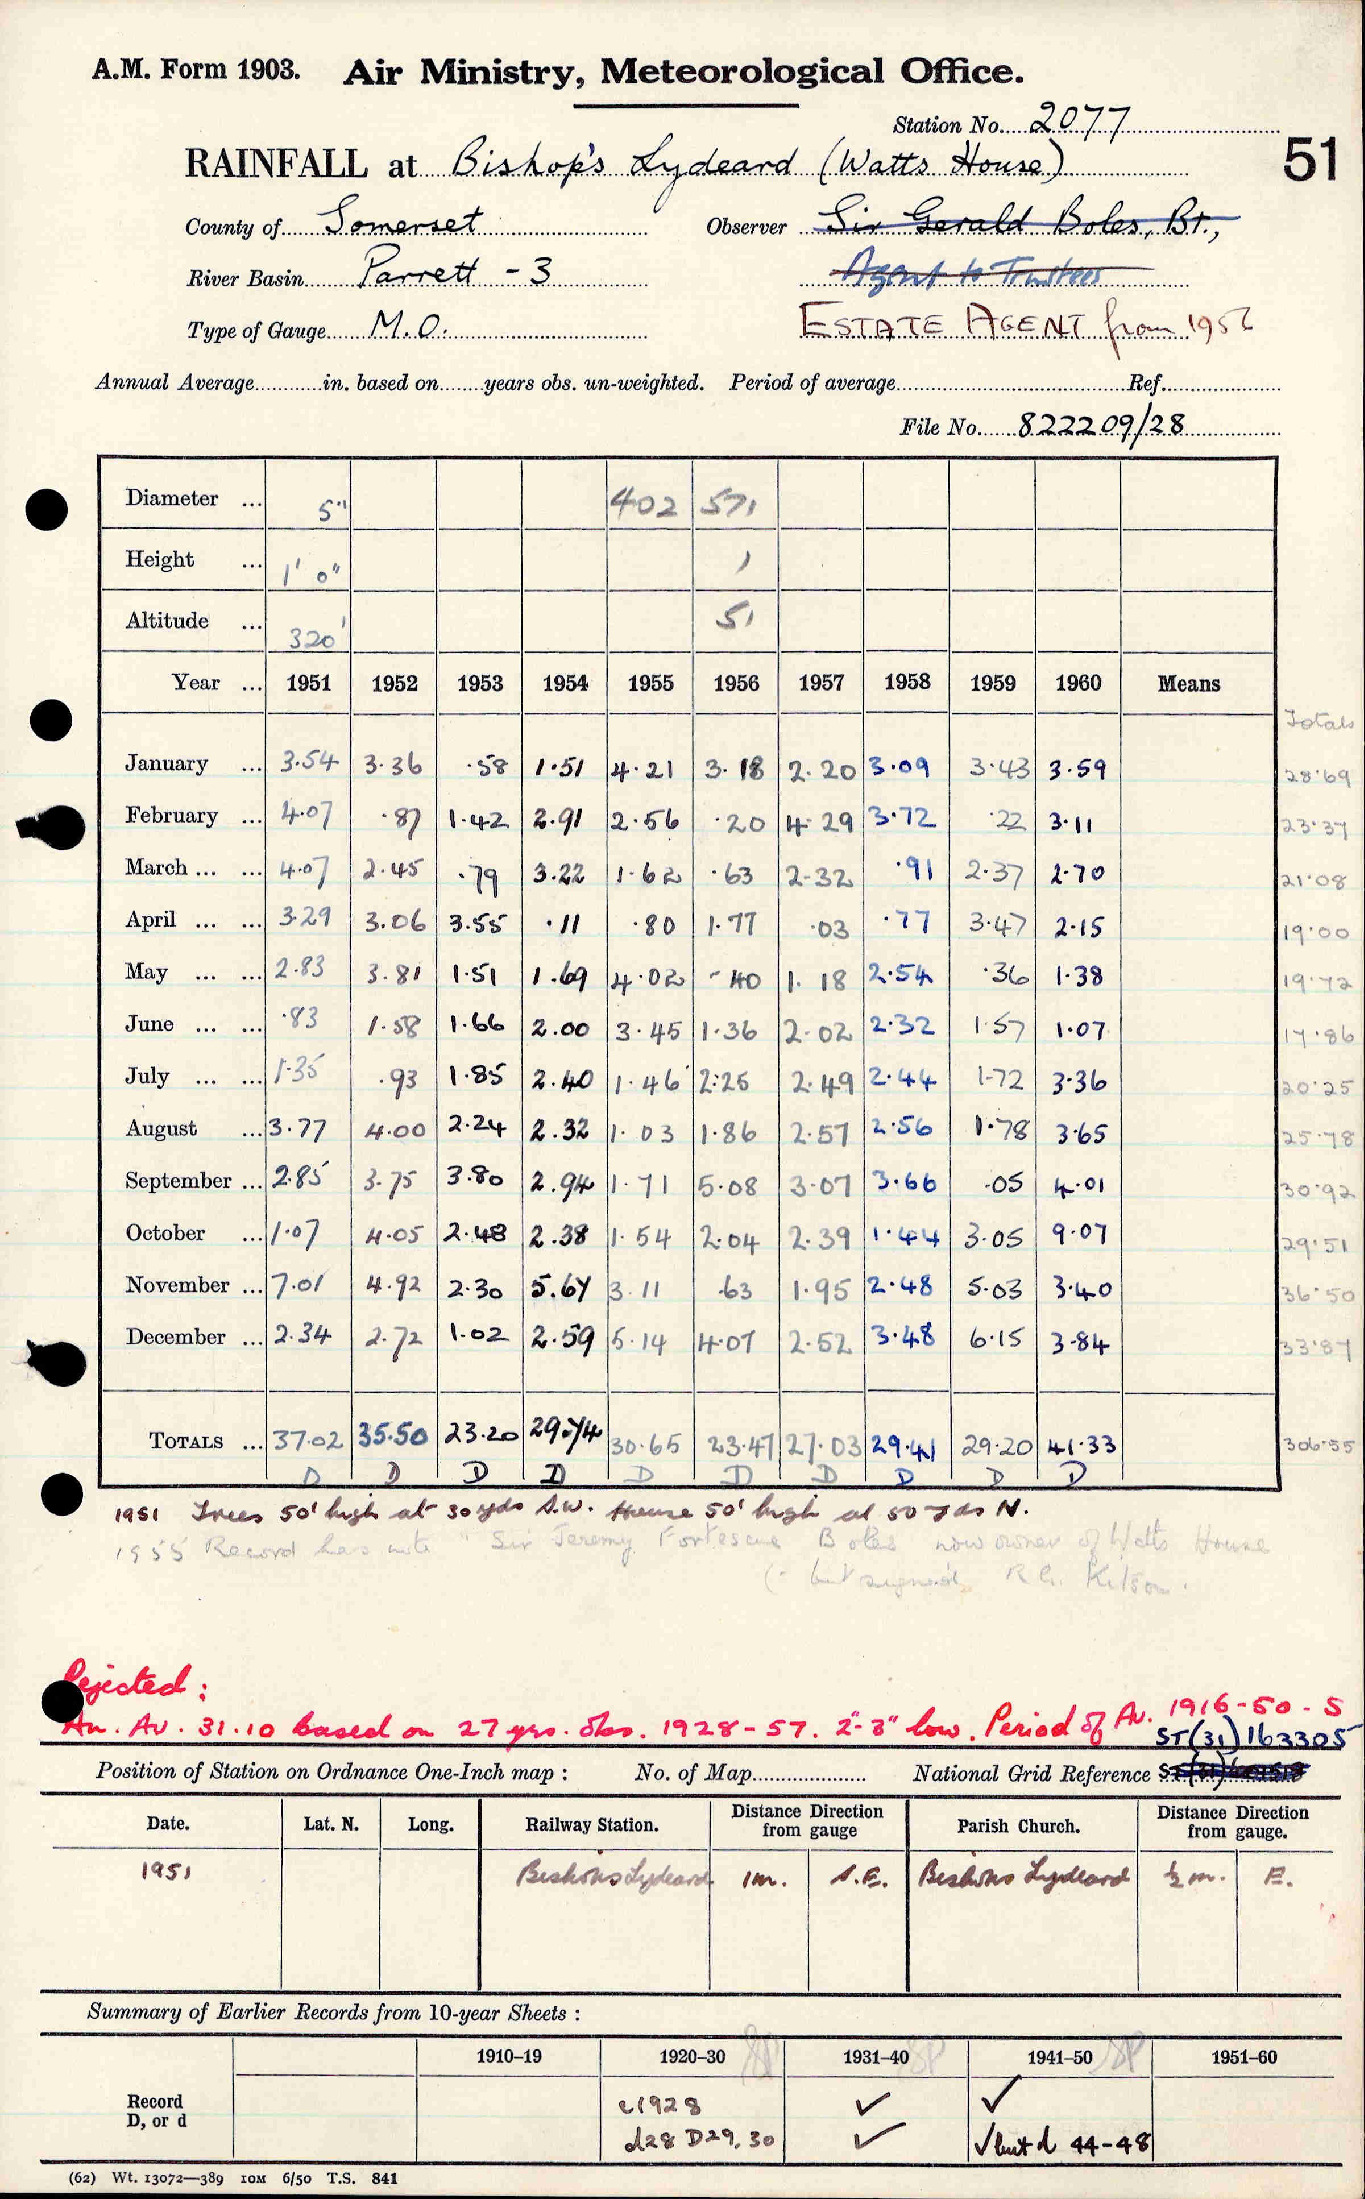 A.M. Form 1903. Air Ministry, Meteorological Office.
Station No. 2077
RAINFALL at Bishop's Lydeard (Watts House) 51
County of Somerset Observer Sir Gerald Boles, Bt.,
River Basin Parrett - 3 Agent to Trustees
Type of Gauge M.O. ESTATE AGENT from 1956
Annual Average in. based on years obs. un-weighted. Period of average Ref.
File No. 822209/28
Diameter ... 5" 402 571
Height ... 1' 0" 1
Altitude ... 320' 51
Year ... 1951 1952 1953 1954 1955 1956 1957 1958 1959 1960 Means
Totals
January ... 3.54 3.36 .58 1.51 4.21 3.18 2.20 3.09 3.43 3.59 28.69
February ... 4.07 .87 1.42 2.91 2.56 .20 4.29 3.72 .22 3.11 23.37
March ... ... 4.07 2.45 .79 3.22 1.62 .63 2.32 .91 2.37 2.70 21.08
April ... ... 3.29 3.06 3.55 .11 .80 1.77 .03 .77 3.47 2.15 19.00
May ... ... 2.83 3.81 1.51 1.69 4.02 .40 1.18 2.54 .36 1.38 19.72
June ... ... .83 1.58 1.66 2.00 3.45 1.36 2.02 2.32 1.57 1.07 17.86
July ... ... 1.35 .93 1.85 2.40 1.46 2.25 2.49 2.44 1.72 3.36 20.25
August ... 3.77 4.00 2.24 2.32 1.03 1.86 2.57 2.56 1.78 3.65 25.78
September ... 2.85 3.75 3.80 2.94 1.71 5.08 3.07 3.66 .05 4.01 30.92
October ... 1.07 4.05 2.48 2.38 1.54 2.04 2.39 1.44 3.05 9.07 29.51
November ... 7.01 4.92 2.30 5.67 3.11 .63 1.95 2.48 5.03 3.40 36.50
December ... 2.34 2.72 1.02 2.59 5.14 4.07 2.52 3.48 6.15 3.84 33.87
TOTALS ... 37.02 35.50 23.20 29.74 30.65 23.47 27.03 29.41 29.20 41.33 306.55
D D D D D D D D D D
1951 Trees 50' high at 30 yds S.W. House 50' high at 50 yds N.
1955 Record has note "Sir Jeremy Fortescue Boles now owner of Watts House
(- but signed R.G. Kitson.
Rejected:
An. Av. 31.10 based on 27 yrs. obs. 1928-57. 2"-3" low. Period of Av. 1916-50 - S
ST(31)163305
Position of Station on Ordnance One-Inch map : No. of Map National Grid Reference
Date. Lat. N. Long. Railway Station. Distance Direction from gauge Parish Church. Distance Direction from gauge.
1951 Bishops Lydeard 1m. S.E. Bishops Lydeard ½ m. E.
Summary of Earlier Records from 10-year Sheets :
1910–19 1920–30 1931–40 1941–50 1951–60
Record c1928 ✓ ✓
D, or d d28 D29,30 ✓ ✓ but d 44-48
(62) Wt. 13072—389 10M 6/50 T.S. 841